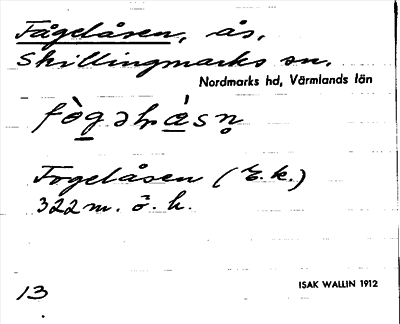 Fågelåsen, ås,
Skillingmarks sn.
Nordmarks hd, Värmlands län
Fogelåsen (E.k.)
322 m. ö. h.
13
ISAK WALLIN 1912